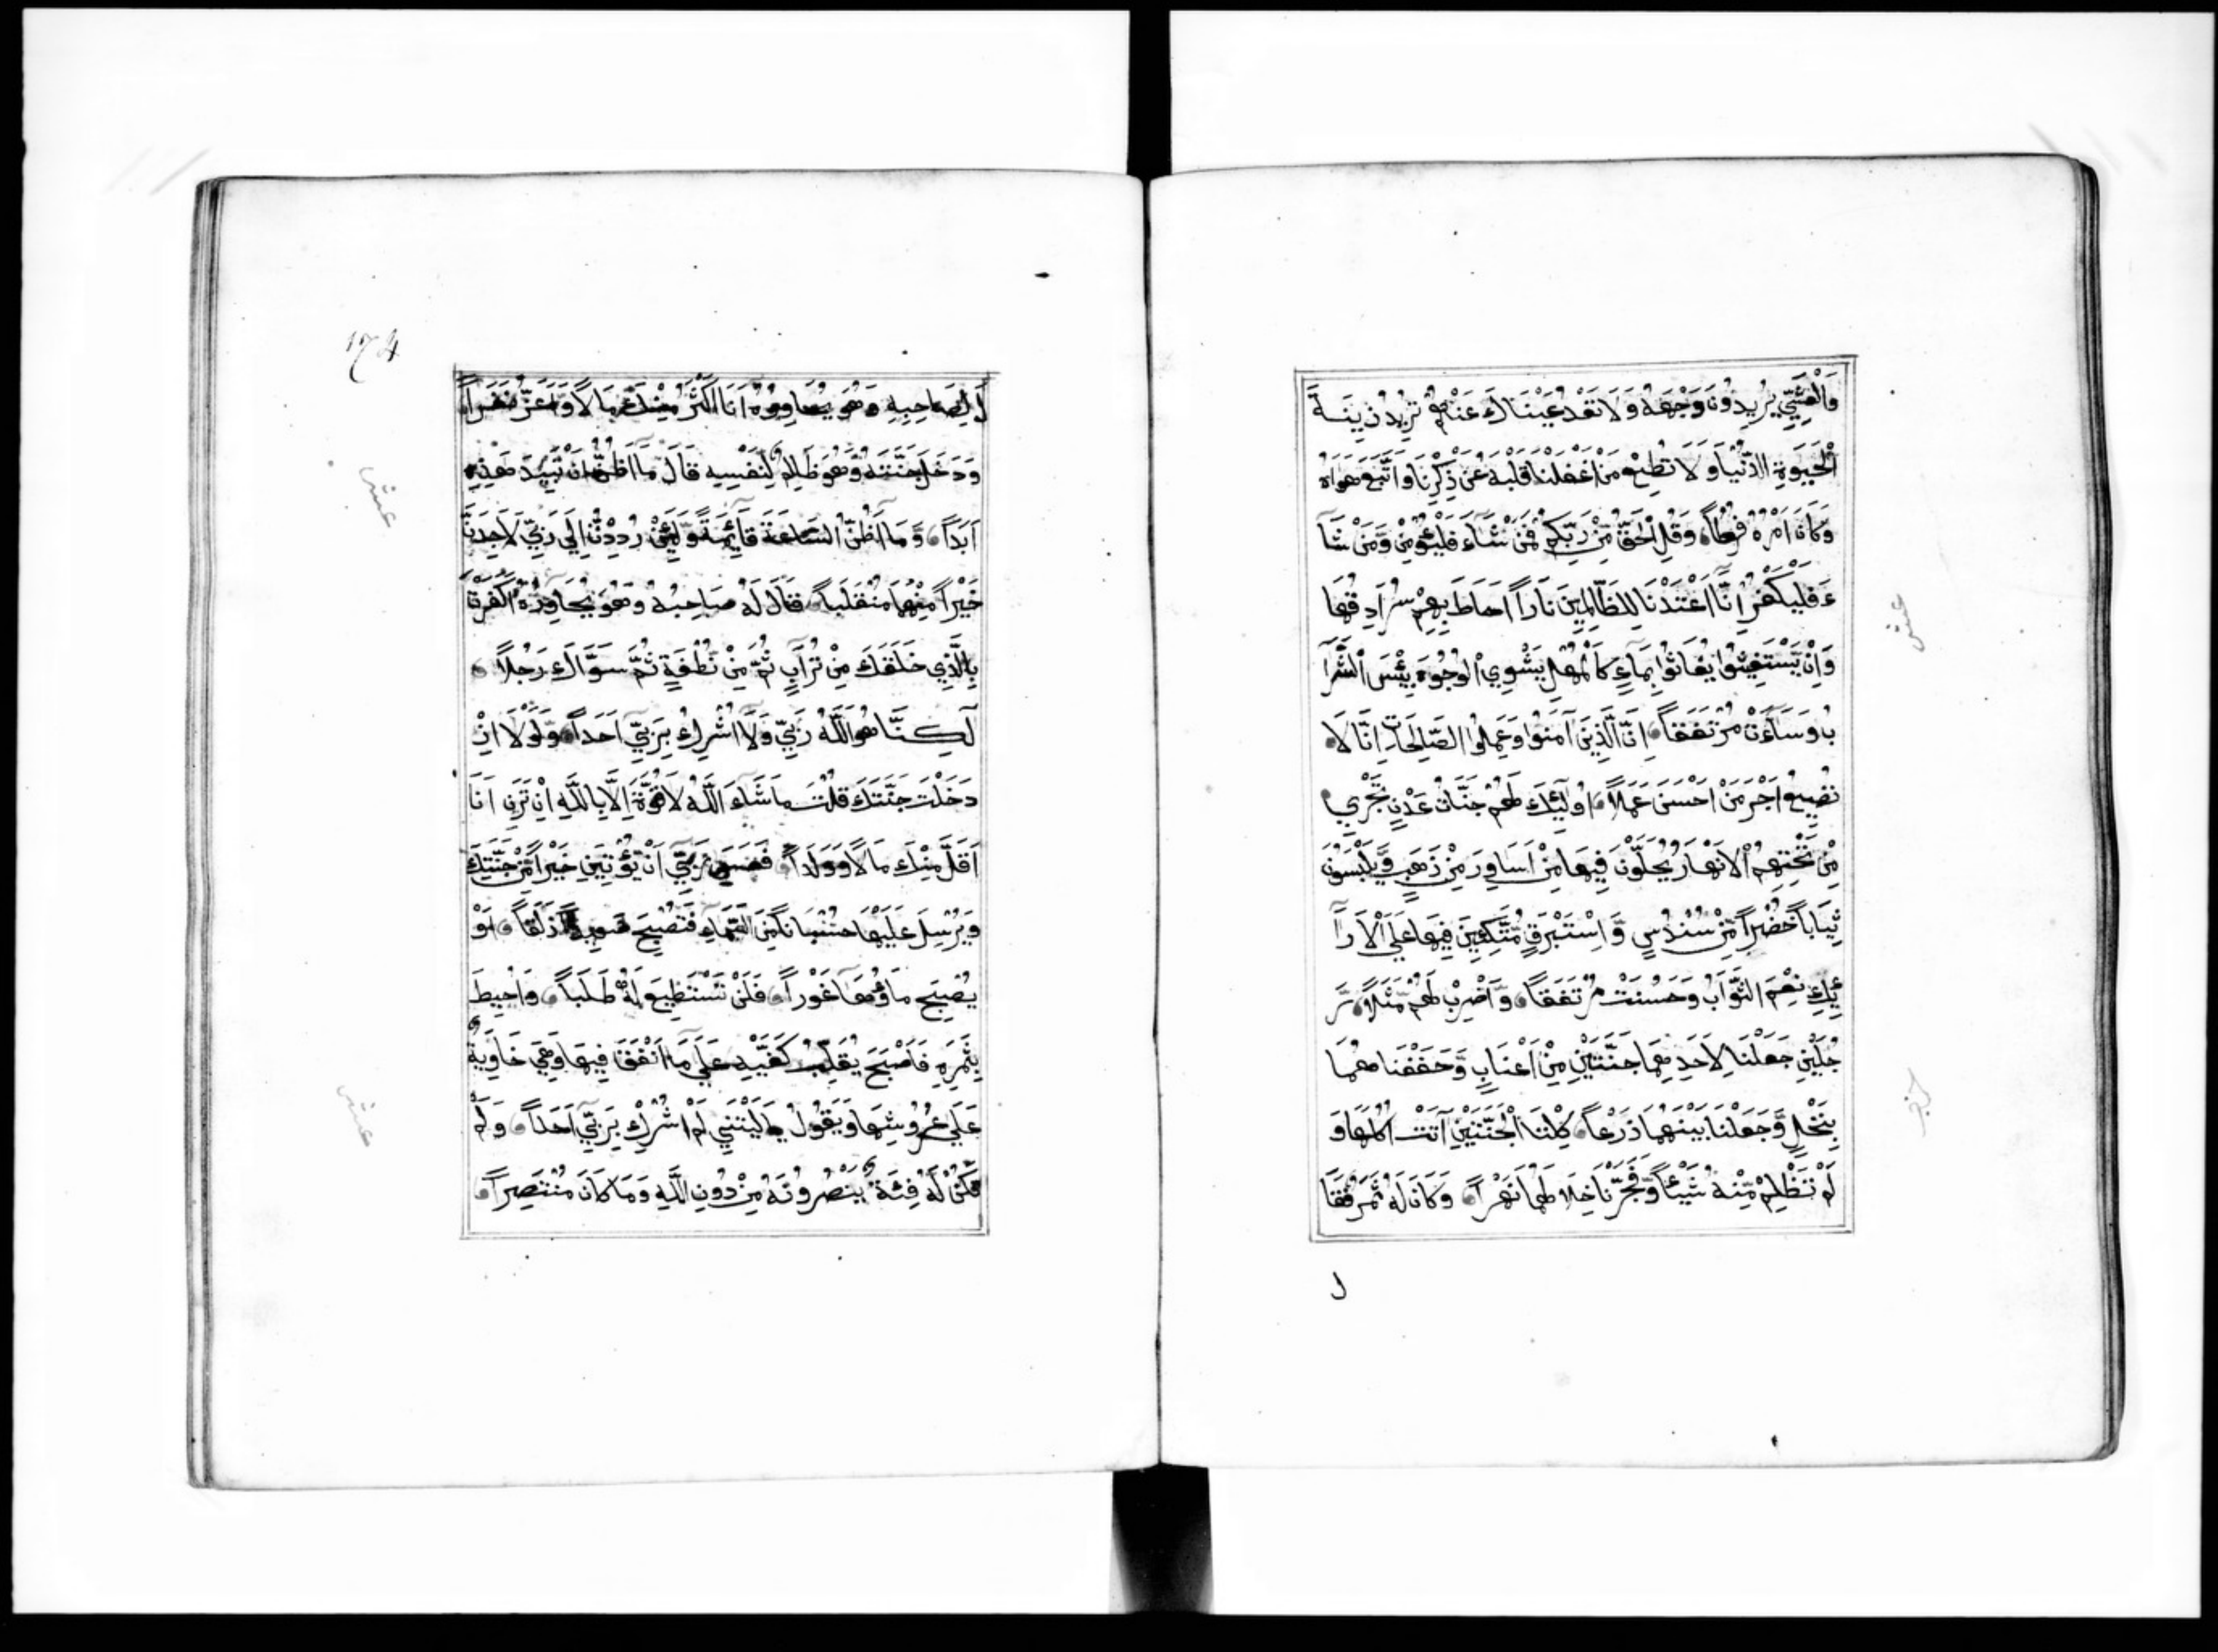 وَالْعَشِيِّ يُرِيدُونَ وَجْهَهُ وَلَا تَعْدُ عَيْنَاكَ عَنْهُمْ تُرِيدُ زِينَةَ
الْحَيَوةِ الدُّنْيَا وَلَا تُطِعْ مَنْ أَغْفَلْنَا قَلْبَهُ عَنْ ذِكْرِنَا وَاتَّبَعَ هَوَاهُ
وَكَانَ أَمْرُهُ فُرُطاً وَقُلِ الْحَقُّ مِنْ رَبِّكُمْ فَمَنْ شَاءَ فَلْيُؤْمِنْ وَّمَنْ شَا
ءَ فَلْيَكْفُرْ إِنَّا أَعْتَدْنَا لِلظَّالِمِينَ نَاراً أَحَاطَ بِهِمْ سُرَادِقُهَا
وَإِنْ يَّسْتَغِيثُوا يُغَاثُوا بِمَاءٍ كَالْمُهْلِ يَشْوِي الْوُجُوهَ بِئْسَ الشَّرَا
بُ وَسَاءَتْ مُرْتَفَقاً إِنَّ الَّذِينَ آمَنُوا وَعَمِلُوا الصَّالِحَاتِ إِنَّا لَا
نُضِيعُ أَجْرَ مَنْ أَحْسَنَ عَمَلاً أُولَئِكَ لَهُمْ جَنَّاتُ عَدْنٍ تَجْرِي
مِنْ تَحْتِهِمُ الْأَنْهَارُ يُحَلَّوْنَ فِيهَا مِنْ أَسَاوِرَ مِنْ ذَهَبٍ وَّيَلْبَسُونَ
ثِيَاباً خُضْراً مِّنْ سُنْدُسٍ وَّإِسْتَبْرَقٍ مُّتَّكِئِينَ فِيهَا عَلَى الْأَرَا
ئِكِ نِعْمَ الثَّوَابُ وَحَسُنَتْ مُرْتَفَقاً وَاضْرِبْ لَهُمْ مَّثَلاً رَّ
جُلَيْنِ جَعَلْنَا لِأَحَدِهِمَا جَنَّتَيْنِ مِنْ أَعْنَابٍ وَّحَفَفْنَاهُمَا
بِنَخْلٍ وَّجَعَلْنَا بَيْنَهُمَا زَرْعاً كِلْتَا الْجَنَّتَيْنِ آتَتْ أُكُلَهَا وَ
لَمْ تَظْلِمْ مِّنْهُ شَيْئاً وَّفَجَّرْنَا خِلَالَهُمَا نَهَراً وَكَانَ لَهُ ثَمَرٌ فَقَا
ل
عشر
حزب
174
لَ لِصَاحِبِهِ وَهُوَ يُحَاوِرُهُ أَنَا أَكْثَرُ مِنْكَ مَالاً وَّأَعَزُّ نَفَراً
وَدَخَلَ جَنَّتَهُ وَهُوَ ظَالِمٌ لِّنَفْسِهِ قَالَ مَا أَظُنُّ أَنْ تَبِيدَ هَذِهِ
أَبَداً وَّمَا أَظُنُّ السَّاعَةَ قَائِمَةً وَّلَئِنْ رُدِدْتُّ إِلَى رَبِّي لَأَجِدَنَّ
خَيْراً مِّنْهُمَا مُنْقَلَباً قَالَ لَهُ صَاحِبُهُ وَهُوَ يُحَاوِرُهُ أَكَفَرْتَ
بِالَّذِي خَلَقَكَ مِنْ تُرَابٍ ثُمَّ مِنْ نُطْفَةٍ ثُمَّ سَوَّاكَ رَجُلاً
لَكِنَّا هُوَ اللَّهُ رَبِّي وَلَا أُشْرِكُ بِرَبِّي أَحَداً وَلَوْلَا إِذْ
دَخَلْتَ جَنَّتَكَ قُلْتَ مَا شَاءَ اللَّهُ لَا قُوَّةَ إِلَّا بِاللَّهِ إِنْ تَرَنِ أَنَا
أَقَلَّ مِنْكَ مَالاً وَوَلَداً فَعَسَى رَبِّي أَنْ يُّؤْتِيَنِ خَيْراً مِّنْ جَنَّتِكَ
وَيُرْسِلَ عَلَيْهَا حُسْبَاناً مِّنَ السَّمَاءِ فَتُصْبِحَ صَعِيداً زَلَقاً أَوْ
يُصْبِحَ مَاؤُهَا غَوْراً فَلَنْ تَسْتَطِيعَ لَهُ طَلَباً وَأُحِيطَ
بِثَمَرِهِ فَأَصْبَحَ يُقَلِّبُ كَفَّيْهِ عَلَى مَا أَنْفَقَ فِيهَا وَهِيَ خَاوِيَةٌ
عَلَى عُرُوشِهَا وَيَقُولُ يَالَيْتَنِي لَمْ أُشْرِكْ بِرَبِّي أَحَداً وَلَمْ
تَكُنْ لَّهُ فِئَةٌ يَنْصُرُونَهُ مِنْ دُونِ اللَّهِ وَمَا كَانَ مُنْتَصِراً
عشر
عشر